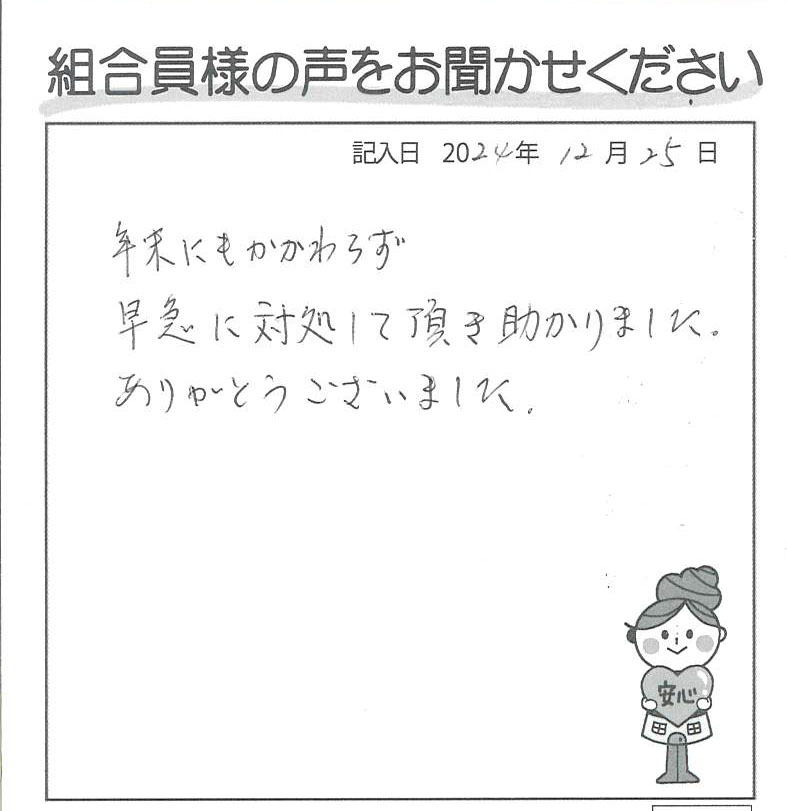 組合員様の声をお聞かせください
記入日 2024年 12月 25日
年末にもかかわらず
早急に対処して頂き助かりました。
ありがとうございました.
安心